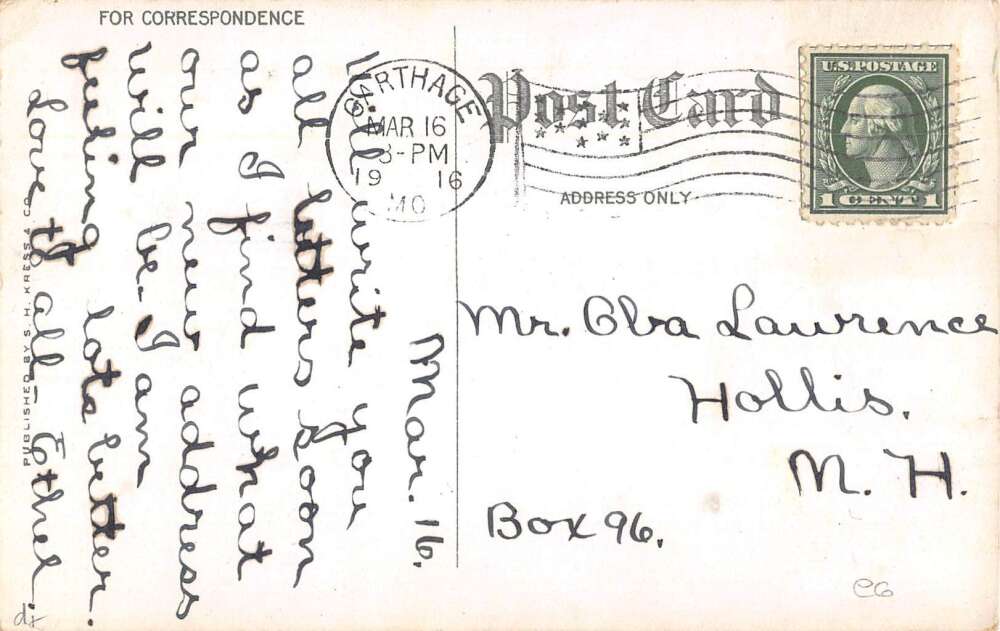 FOR CORRESPONDENCE
Mar. 16.
Will write you
all letters soon
as I find what
our new address
will be. I am
feeling lots better.
Love to all – Ethel.
PUBLISHED BY S. H. KRESS & CO.
CARTHAGE
MAR 16
8-PM
19 16
MO
Post Card
ADDRESS ONLY
U.S. POSTAGE
1 CENT 1
Mr. Elva Lawrence
Hollis,
N. H.
Box 96.